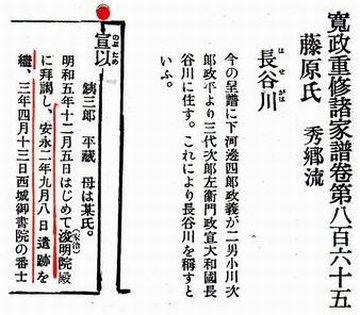 寛政重修諸家譜卷第八百六十五
藤原氏 秀郷流
長谷川
はせがは
今の呈譜に下河邊四郎政義が二男小川次
郎政平より三代次郎左衞門政宣大和國長
谷川に住す。これにより長谷川を稱すと
いふ。
宣以
のぶため
銕三郎 平藏 母は某氏。
明和五年十二月五日はじめて浚明院殿
(家治)
に拜謁し、安永二年九月八日遺跡を
繼、三年四月十三日西城御書院の番士